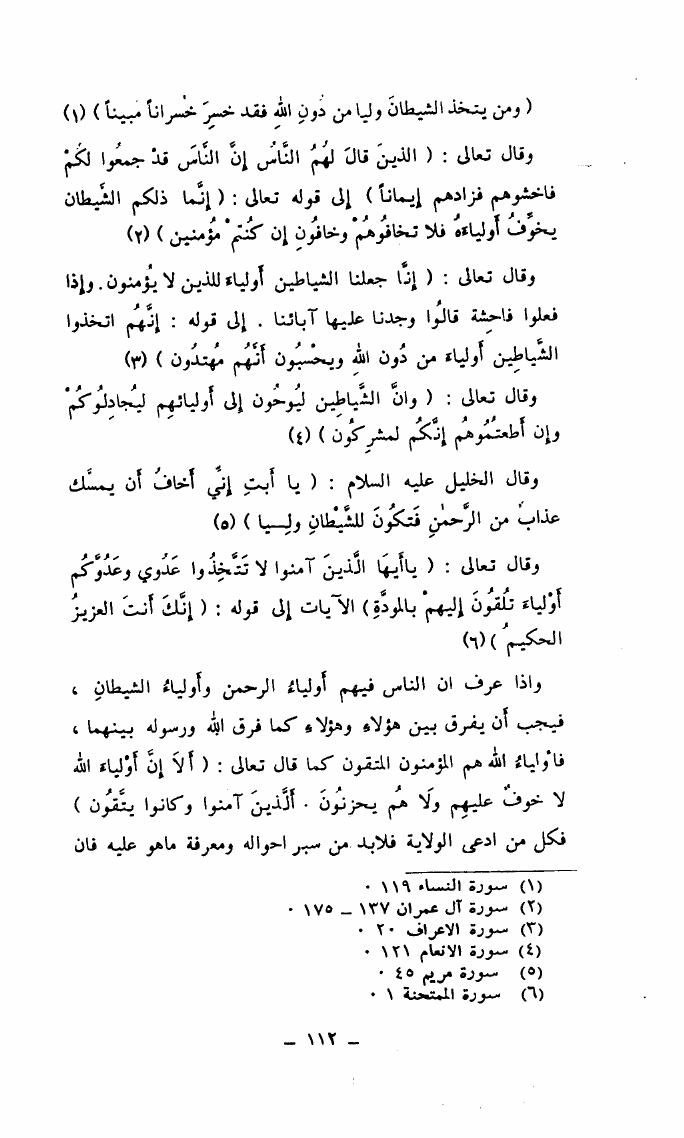 ( ومن يتخذ الشيطانَ وليا من دُونِ اللهِ فقد خسِرَ خُسراناً مُبيناً ) (١)
وقال تعالى : ( الذينَ قالَ لهُمُ النَّاسُ إنَّ النَّاسَ قدْ جمعُوا لكُمْ
فاخشوهم فزادهم إيماناً ) إلى قوله تعالى : ( إنَّما ذلكم الشَّيطان
يخوِّفُ أولياءَهُ فلا تخافُوهُمْ وخافُونِ إن كُنتمْ مُؤمنين ) (٢)
وقال تعالى : ( إنَّا جعلنا الشياطين أولياءَ للذين لا يُؤمنون . وإذا
فعلوا فاحِشة قالُوا وجدنا عليها آبائنا . إلى قوله : إنَّهُم اتخذوا
الشَّياطِين أولياءَ من دُون اللهِ ويحْسبُون أنَّهُم مُهتدُون ) (٣)
وقال تعالى : ( وانَّ الشَّياطِين ليُوحُون إلى أوليائهِم ليُجادِلُوكُمْ
وإن أطعتمُوهُم إنَّكُم لمشرِكُون ) (٤)
وقال الخليل عليه السلام : ( يا أبتِ إنِّي أخافُ أن يمسَّك
عذابٌ من الرَّحمٰنِ فَتكُونَ للشَّيْطانِ ولِــيا ) (٥)
وقال تعالى : ( ياأيهَا الَّذينَ آمنوا لا تَتَّخِذُوا عَدُوي وعَدُوَّكُم
أوْلياءَ تلُقونَ إليهمْ بالمودَّةِ ) الآيات إلى قوله : ( إنَّكَ أنتَ العزيزُ
الحكيمُ ) (٦)
واذا عرف ان الناس فيهم أولياءُ الرحمن وأولياءُ الشيطانِ ،
فيجب أن يفرق بين هؤلاءِ وهؤلاءِ كما فرق اللهُ ورسوله بينهما ،
فأولياءُ اللهِ هم المؤمنون المتقون كما قال تعالى : ( ألاَ إنَّ أوْلياءَ اللهِ
لا خوفٌ عليهِم ولَا هُم يحزنُونَ . ألَّذينَ آمنوا وكانوا يتَّقُون )
فكل من ادعى الولاية فلابد من سبر احواله ومعرفة ماهو عليه فان
(١) سورة النساء ١١٩ ٠
(٢) سورة آل عمران ١٣٧ ــ ١٧٥ ٠
(٣) سورة الاعراف ٢٠ ٠
(٤) سورة الانعام ١٢١ ٠
(٥) سورة مريم ٤٥ ٠
(٦) سورة الممتحنة ١ ٠
ــ ١١٢ ــ